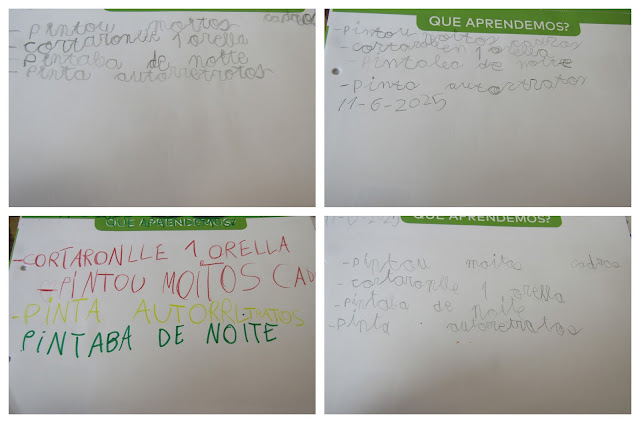 - pintou moitos cadros
- cortaronlle 1 orella
- pintaba de noite
- pinta autorretratos
QUE APRENDEMOS?
- pintou moitos cadros
- cortaronlle 1 orella
- pintaba de noite
- pinta autorretratos
11-6-2025
QUE APRENDEMOS?
- CORTARONLLE 1 ORELLA
- PINTOU MOITOS CAD
- PINTA AUTORRITRATOS
PINTABA DE NOITE
QUE APRENDEMOS?
- pintou moitos cadros
- cortaronlle 1 orella
- pintaba de noite
- pinta autoretratos